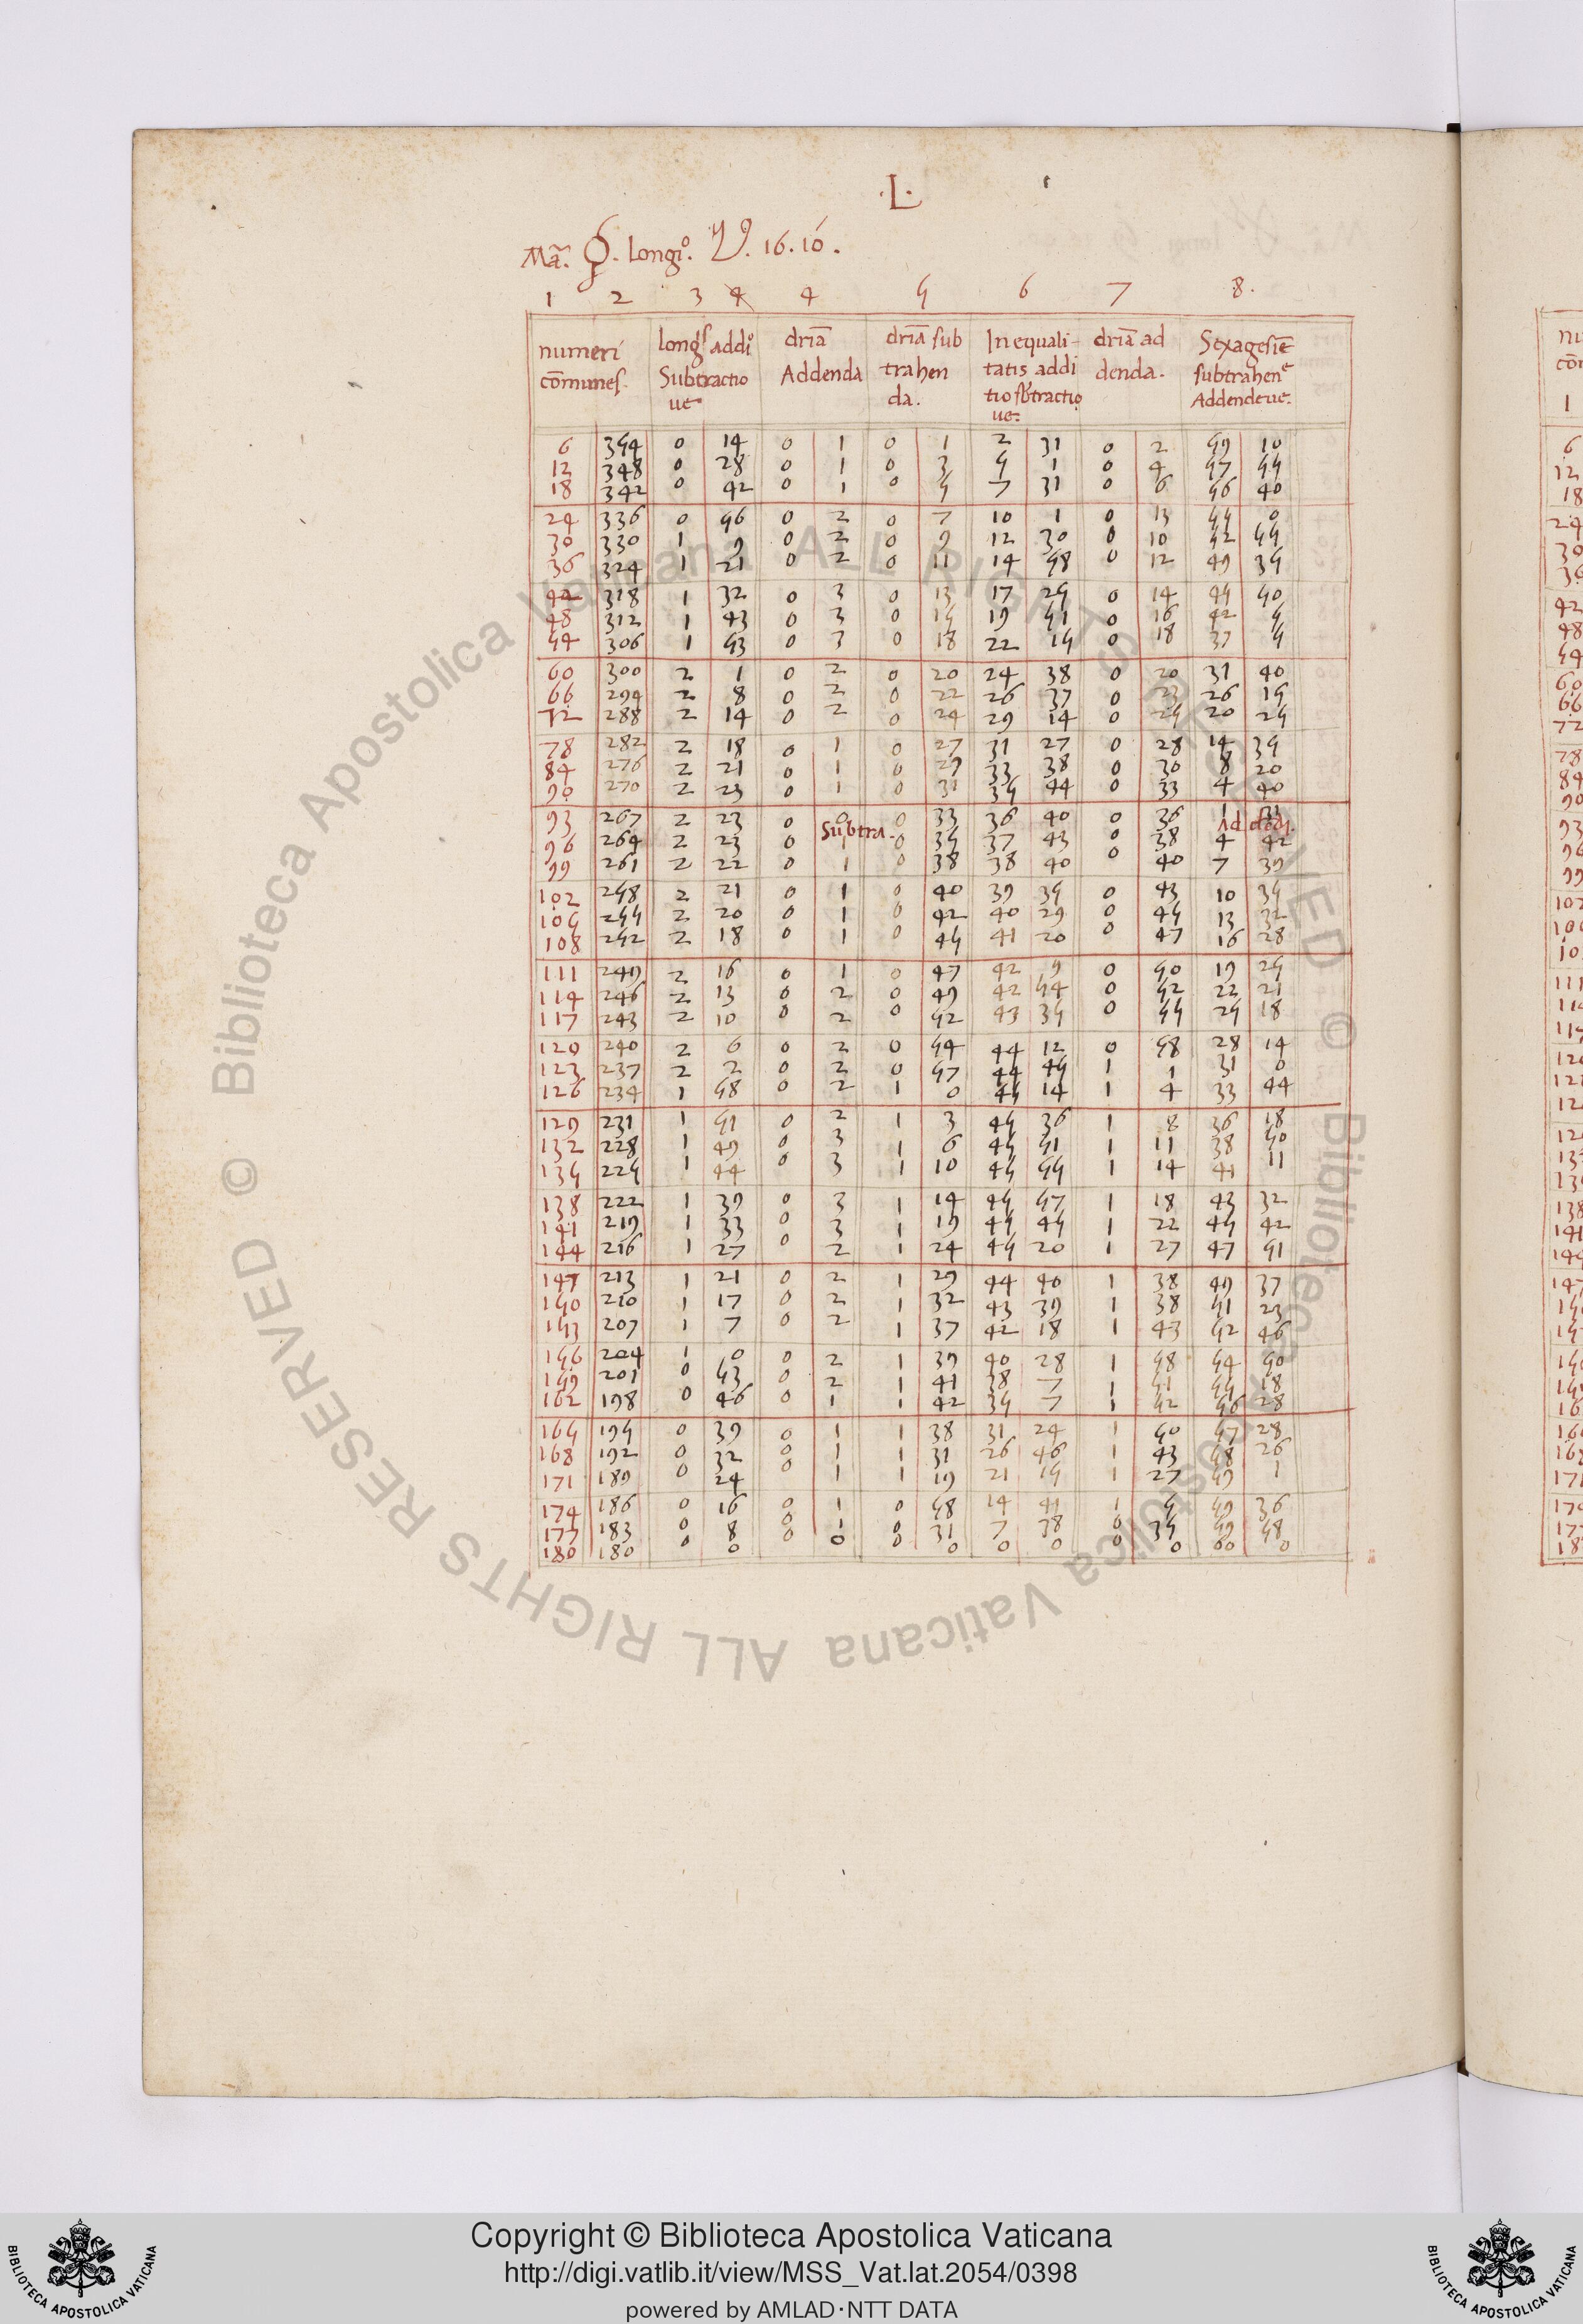 .L.
Mã. ♀. longi⁰. ♉. 16. 10.
1 2 3 4 4 5 6 7 8.
numeri cõmunes.
long⁵ addi⁰ Subtractio ue
driã Addenda
driã sub trahen da.
Inequali- tatis addi tio sbtractio ue.
driã ad denda.
Sexagesiẽ subtrahenᵉ Addendeue.
6 354 0 14 0 1 0 1 2 31 0 2 59 10
12 348 0 28 0 1 0 3 5 1 0 4 57 55
18 342 0 42 0 1 0 5 7 31 0 6 56 40
24 336 0 56 0 2 0 7 10 1 0 13 55 0
30 330 1 9 0 2 0 9 12 30 0 10 52 55
36 324 1 21 0 2 0 11 14 58 0 12 49 35
42 318 1 32 0 3 0 13 17 25 0 14 45 50
48 312 1 43 0 3 0 15 19 51 0 16 42 5
54 306 1 53 0 3 0 18 22 15 0 18 37 5
60 300 2 1 0 2 0 20 24 38 0 20 31 40
66 294 2 8 0 2 0 22 26 37 0 23 26 15
72 288 2 14 0 2 0 24 29 14 0 25 20 25
78 282 2 18 0 1 0 27 31 27 0 28 14 35
84 276 2 21 0 1 0 29 33 38 0 30 8 20
90 270 2 23 0 1 0 31 35 44 0 33 4 40
93 267 2 23 0 0 0 33 36 40 0 36 1 31
Subtra. Ad dedi.
96 264 2 23 0 1 0 35 37 43 0 38 4 42
99 261 2 22 0 1 0 38 38 40 0 40 7 39
102 258 2 21 0 1 0 40 39 35 0 43 10 35
105 255 2 20 0 1 0 42 40 29 0 45 13 32
108 252 2 18 0 1 0 45 41 20 0 47 16 28
111 249 2 16 0 1 0 47 42 9 0 50 19 25
114 246 2 13 0 2 0 49 42 54 0 52 22 21
117 243 2 10 0 2 0 52 43 35 0 55 25 18
120 240 2 6 0 2 0 54 44 12 0 58 28 14
123 237 2 2 0 2 0 57 44 45 1 1 31 0
126 234 1 58 0 2 1 0 45 14 1 4 33 44
129 231 1 51 0 2 1 3 45 36 1 8 36 18
132 228 1 49 0 3 1 6 45 51 1 11 38 50
135 225 1 44 0 3 1 10 45 55 1 14 41 11
138 222 1 39 0 3 1 14 45 57 1 18 43 32
141 219 1 33 0 3 1 19 45 45 1 22 45 42
144 216 1 27 0 2 1 24 45 20 1 27 47 51
147 213 1 21 0 2 1 29 44 40 1 38 49 37
150 210 1 17 0 2 1 32 43 39 1 38 51 23
153 207 1 7 0 2 1 37 42 18 1 43 52 46
156 204 1 0 0 2 1 39 40 28 1 58 54 50
159 201 0 53 0 2 1 41 38 7 1 51 55 18
162 198 0 46 0 1 1 42 35 7 1 52 56 28
165 195 0 39 0 1 1 38 31 24 1 50 57 28
168 192 0 32 0 1 1 31 26 46 1 43 58 26
171 189 0 24 0 1 1 19 21 15 1 27 59 1
174 186 0 16 0 1 0 58 14 41 1 5 59 36
177 183 0 8 0 1 0 31 7 38 0 35 59 58
180 180 0 0 0 0 0 0 0 0 0 0 00 0
© Biblioteca Apostolica Vaticana ALL RIGHTS RESERVED © Biblioteca Apostolica Vaticana ALL RIGHTS RESERVED
Copyright © Biblioteca Apostolica Vaticana
http://digi.vatlib.it/view/MSS_Vat.lat.2054/0398
powered by AMLAD·NTT DATA
BIBLIOTECA APOSTOLICA VATICANA
BIBLIOTECA APOSTOLICA VATICANA